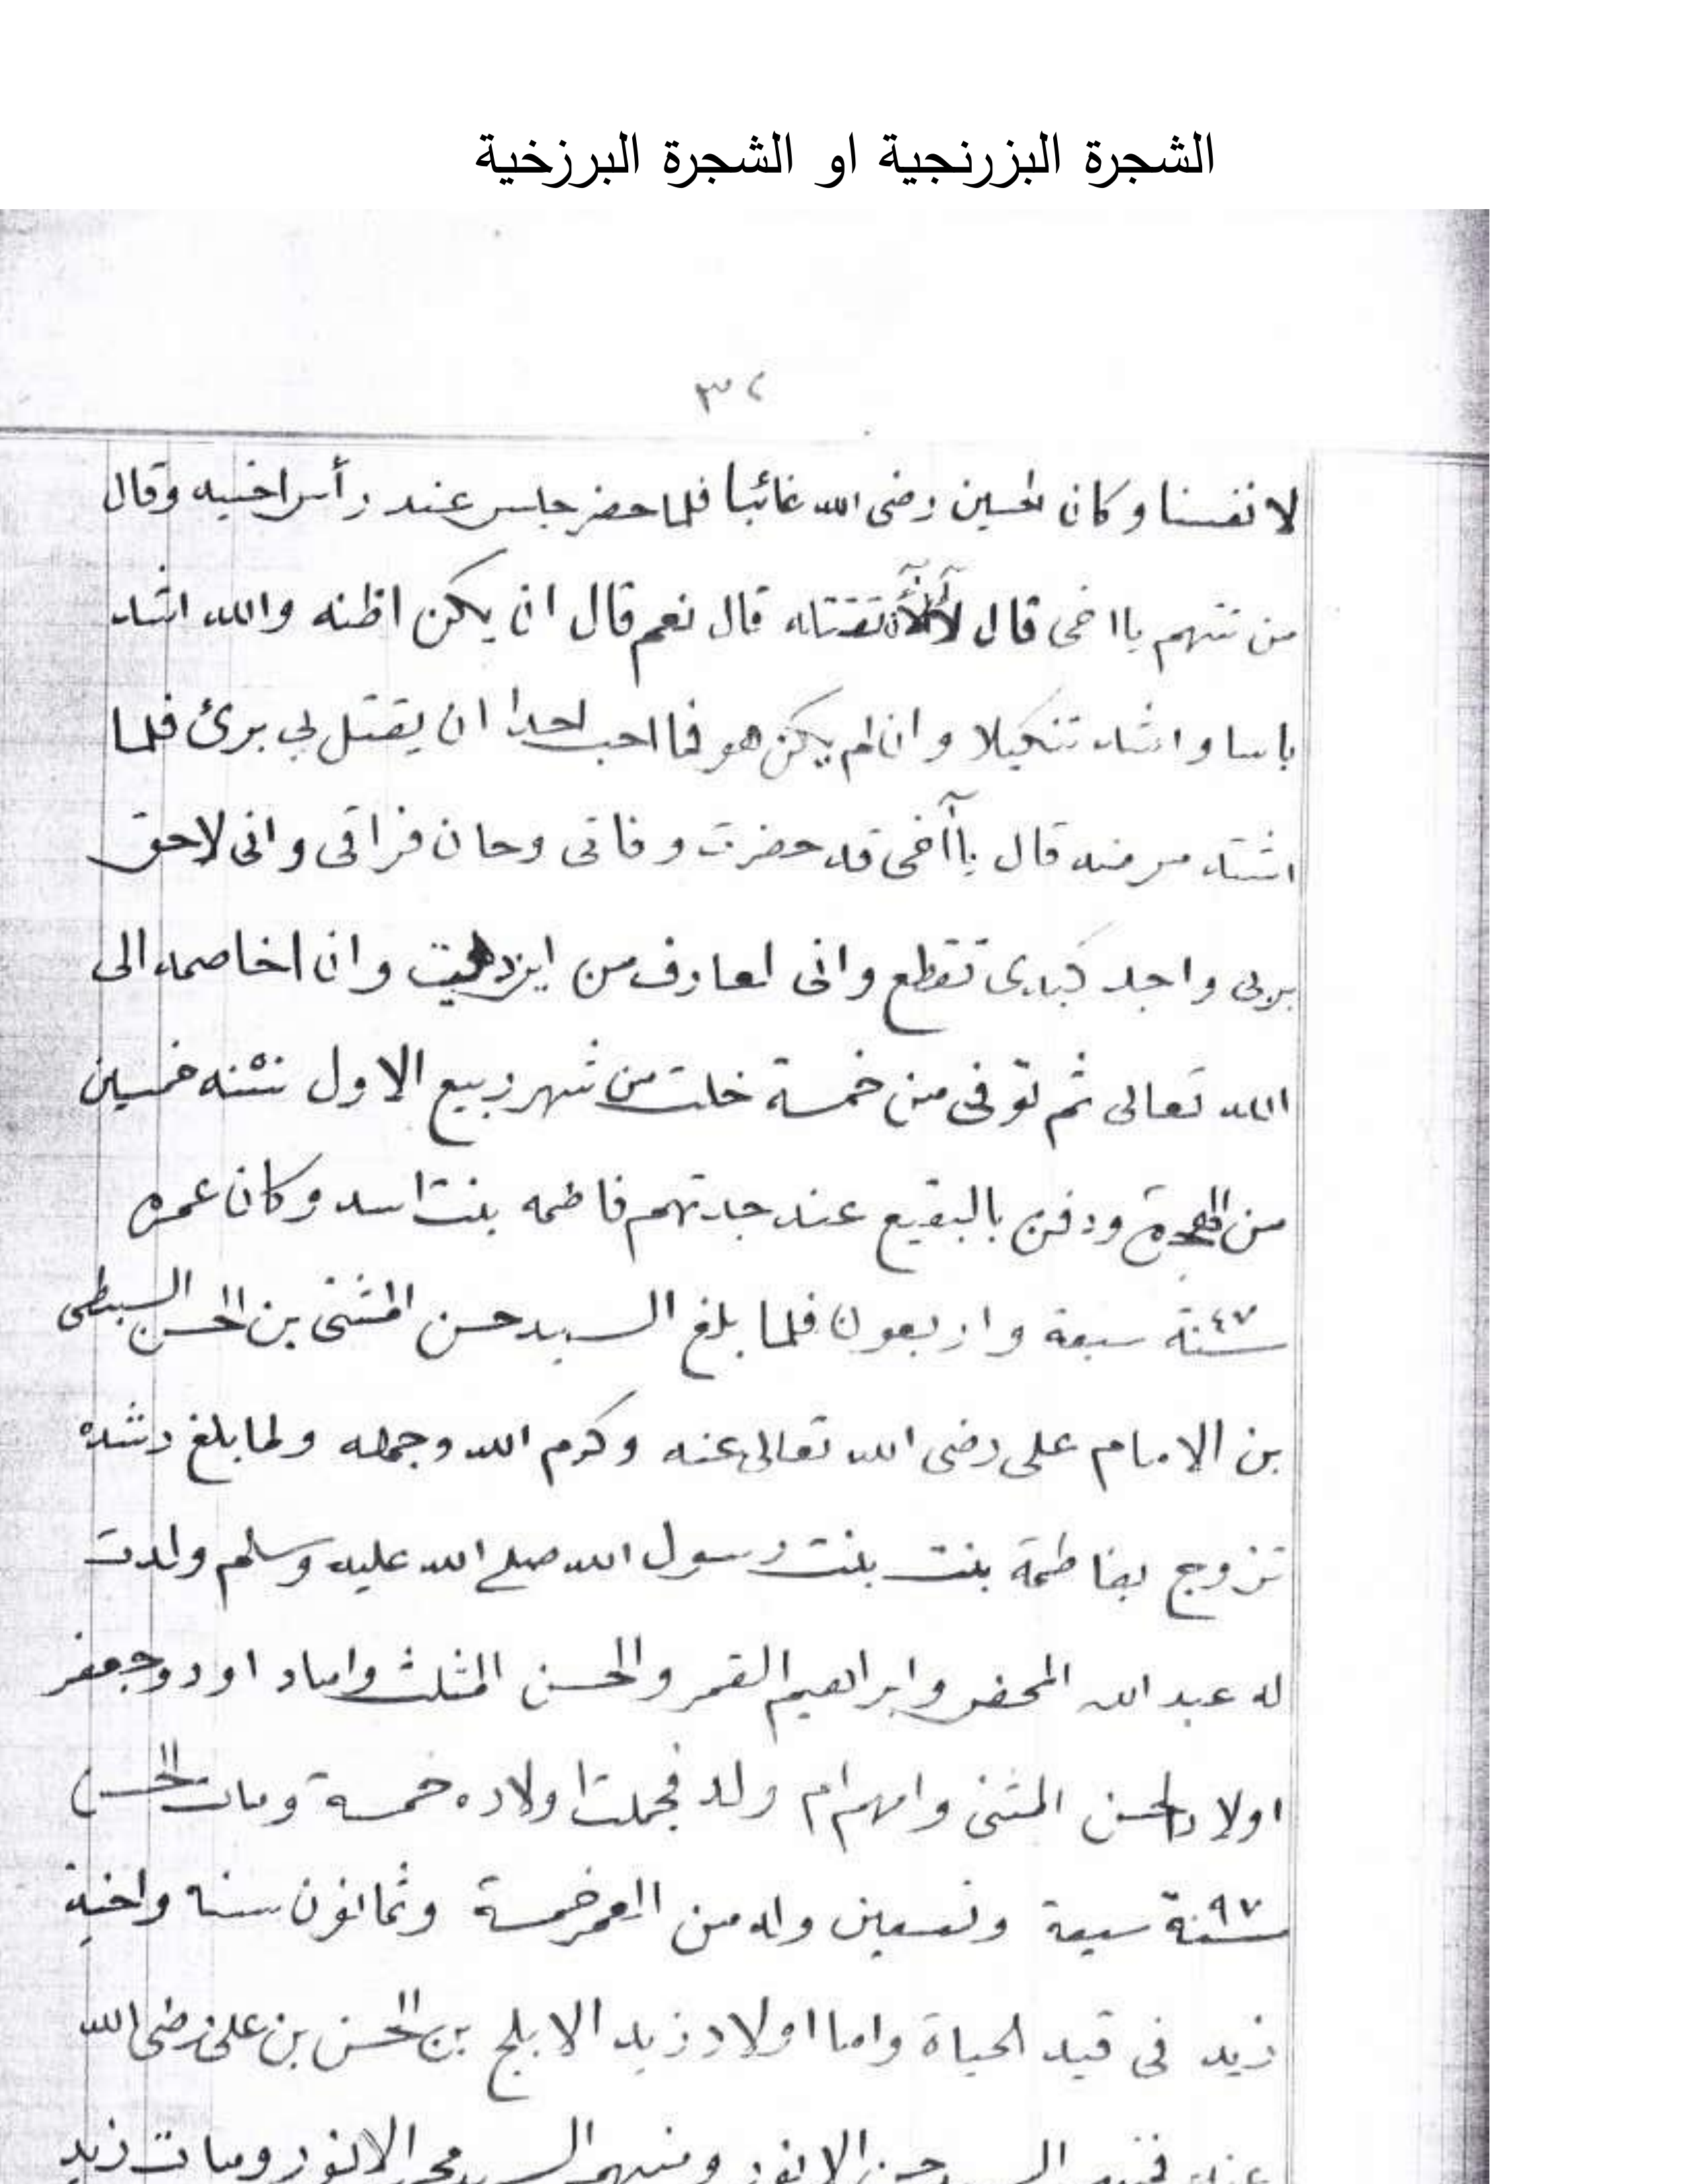 الشجرة البزرنجية او الشجرة البرزخية
٣٢
لانفسنا وكان لحسين رضى الله غائبا فلما حضر جلس عند رأس اخيه وقال
من تتهم يااخى قال لأن تقتله قال نعم قال ان يكن اظنه والله اشد
باسا واشد تنكيلا وان لم يكن هو فما احب لحدا ان يقتل بي برئ فلما
اشتد مرضه قال ياآخى قد حضرت وفاتى وحان فراقى وانى لاحق
بربى واجد كبدى تقطع وانى لعارف من اين دهيت وانا اخاصمه الى
الله تعالى ثم توفى من خمسة خلت من شهر ربيع الاول سنه ٥٠ خمسين
من الهجرة ودفن بالبقيع عند جدتهم فاطمه بنت اسد وكان عمره
سنة ٤٧ سبعة واربعون فلما بلغ السيد حسن المثنى بن الحسن السبطى
بن الامام على رضى الله تعالى عنه وكرم الله وجهه ولما بلغ رشده
تزوج بفاطمة بنت بنت رسول الله صلى الله عليه وسلم ولدت
له عبد الله المحض وابراهيم القمر والحسن المثلث واما داود وجعفر
اولاد لحسن المثنى وامهم ام ولد فجملت اولاده خمسة ومات الحسن
سنة ٩٧ سبعة وتسعين وله من العمر خمسة وثمانون سنه واخية
زيد فى قيد الحياة واما اولاد زيد الابلج بن الحسن بن على رضى الله
عنه فمنهم السيد حسن الانور ومنهم السيد محمد الانور ومات زيد